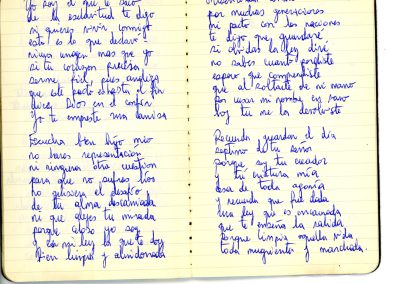 Yo soy el que te saco
de la esclavitud te digo
si quieres vivir conmigo
esto es lo que declaro
ninguna imagen mas que yo
si tu corazon precisa
serme fiel, pues analiza
que este pacto es hasta el fin
dice Dios en el confin
Yo te empeste una camisa
Escucha bien hijo mio
no hares representacion
ni ninguna otra cuestion
para que no sufras lios
no quisiera el desafio
de tu alma descarriada
ni que alejes tu mirada
porque celoso yo soy
y es mi ley la que te doy
Bien limpia y almidonada
por muchas generaciones
mi pacto con las naciones
te digo que guardaré
si olvidas la ley diré
no sabes cuanto perdiste
espero que comprendiste
que al soltarte de mi mano
por usar mi nombre en vano
hoy tu me la devolviste
Recuerda guardar el dia
septimo de tu señor
porque soy tu creador
y tu criatura mia
cosa de toda agonia
y recuerda que fue dada
una ley que es encarnada
que te enseña la salida
porque limpia aquella vida
toda mugrienta y manchada.